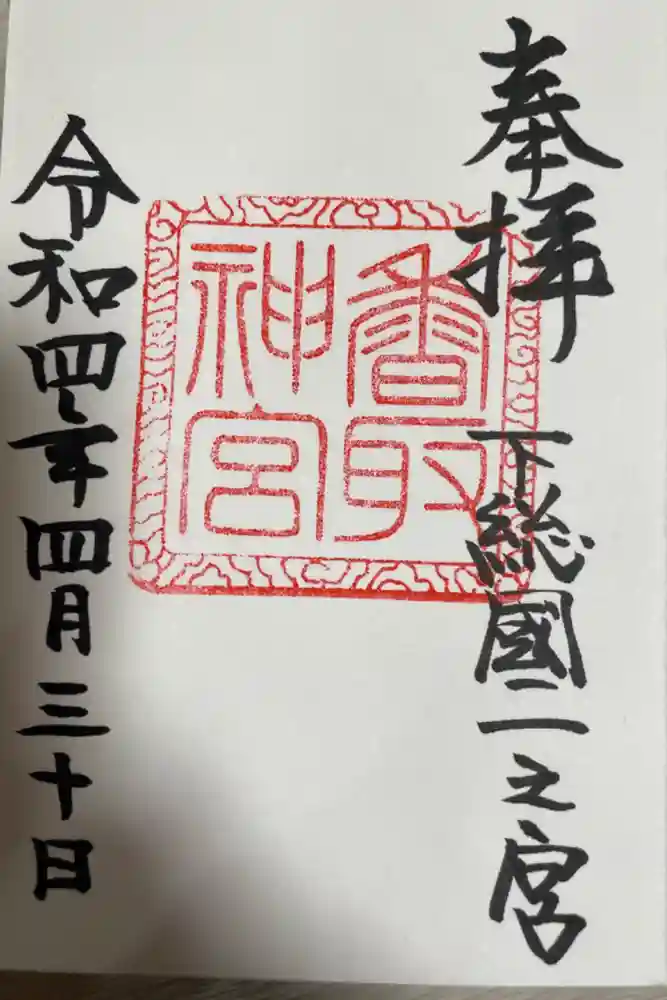 奉拝 下総國二之宮
香取
神宮
令和四年四月三十日